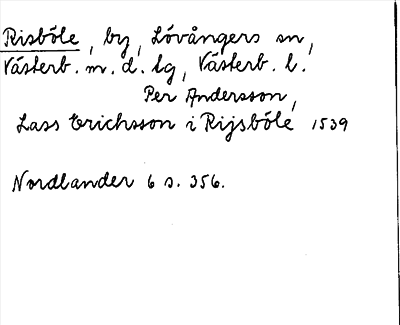 Risböle, by, Lövångers sn,
Västerb. m. d. lg, Västerb. l.
Per Andersson,
Lass Erichsson i Rijsböle 1539
Nordlander 6 s. 356.